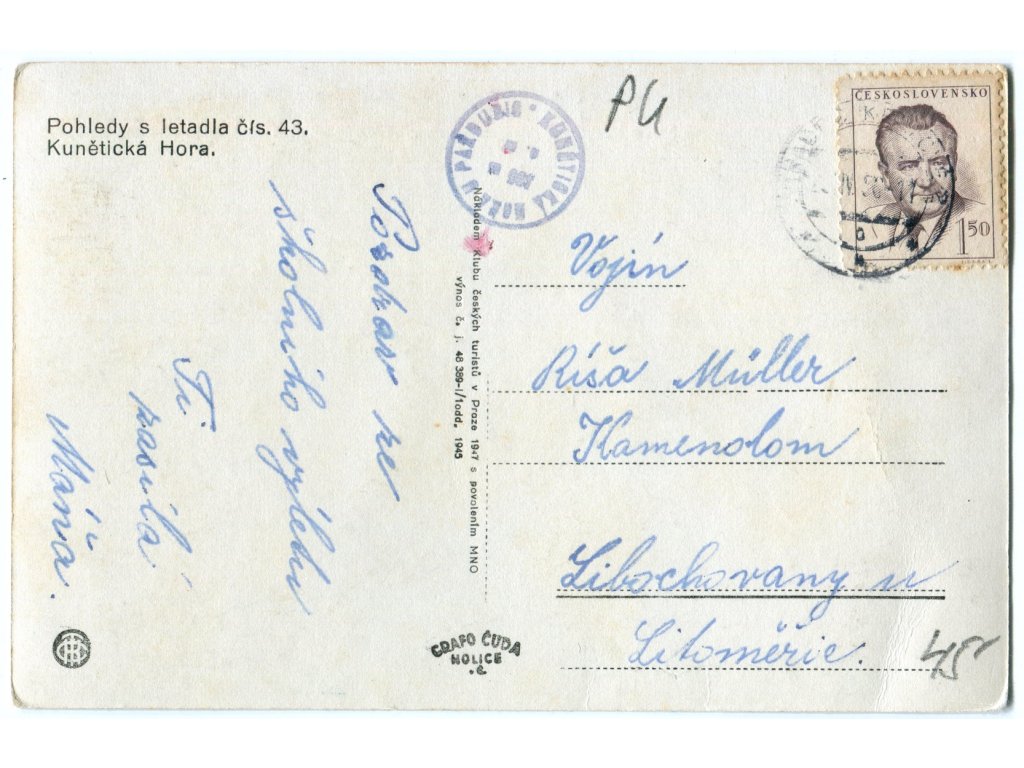 Pohledy s letadla čís. 43.
Kunětická Hora.
PU
ČESKOSLOVENSKO
1.50
KUNĚTICKÁ HORA U PARDUBIC
Pozdrav ze
školního výletu
Ti
zasílá
Máňa.
Nákladem Klubu českých turistů v Praze 1947 s povolením MNO
výnos č. j. 48 389-I/1odd. 1945
Vojín
Ríša Müller
Kamenolom
Libochovany u
Litoměřic.
GRAFO ČUDA
HOLICE
v.Č.
45